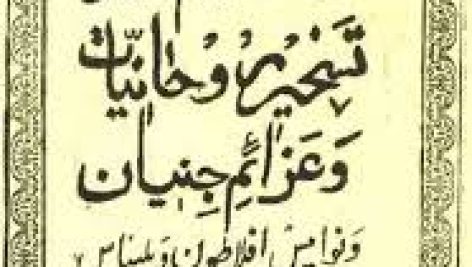 تسخیر روحانیات
وَعَزائمِ جِنیان
و نوامیس افلاطون و بلیناس